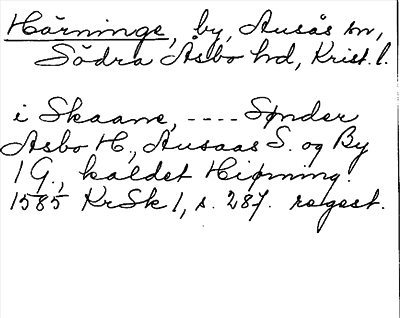 Härninge, by, Ausås sn,
Södra Åsbo hd, Krist. l.
i Skaane, ---- Sønder
Asbo H., Ausaas S. og By
1 G., kaldet Hiørning.
1585 KrSk 1, s. 287. regest.